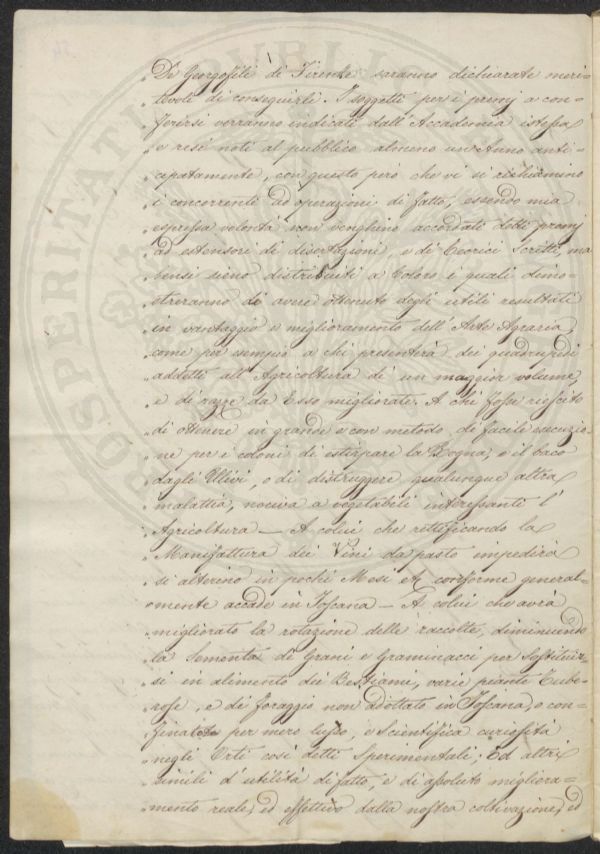 De Georgofili di Firenze saranno dichiarate meri-
„tevoli di conseguirli. I soggetti per i premj a con-
„ferirsi verranno indicati dall'Accademia istessa
„e resi noti al pubblico almeno un'Anno anti-
„cipatamente, con questo però che vi si richiamino
„i concorrenti ad operazioni di fatto, essendo mia
„espressa volontà non venghino accordati detti premj
„ad estensori di disertazioni, e di Teorici Scritti, ma
„bensì sieno distribuiti a Coloro i quali dimo-
„streranno di avere ottenuto degli utili resultati
„in vantaggio e miglioramento dell'Arte Agraria,
„come per esempio a chi presenterà dei quadrupedi
„addetti all'Agricoltura di un maggior volume,
„e di razze da Esso migliorate. A chi fosse riescito
„di ottenere in grande e con metodo, di facile esecuzio-
„ne per i coloni di estirpare la Rogna, o il baco
„dagli Ullivi, o di distruggere qualunque altra
„malattia, nociva a vegetabili interessanti l'
„Agricoltura — A colui che rettificando la
„Manifattura dei Vini da pasto impedirà
„si alterino in pochi Mesi conforme general-
„mente accade in Toscana — A colui che avrà
„migliorato la rotazione delle raccolte, diminuendo
„la Sementa di Grani e Graminacci per Sostituir-
„si in alimento dei Bestiame, varie piante Tube-
„rose, e di foraggio non adottato in Toscana, o con-
„finate per mero lusso, e Scientifica curiosità
„negli Orti così detti Sperimentali; Ed altri
„simili d'utilità di fatto, e di assoluto migliora-
„mento reale, ed effettivo dalla nostra coltivazione, ed